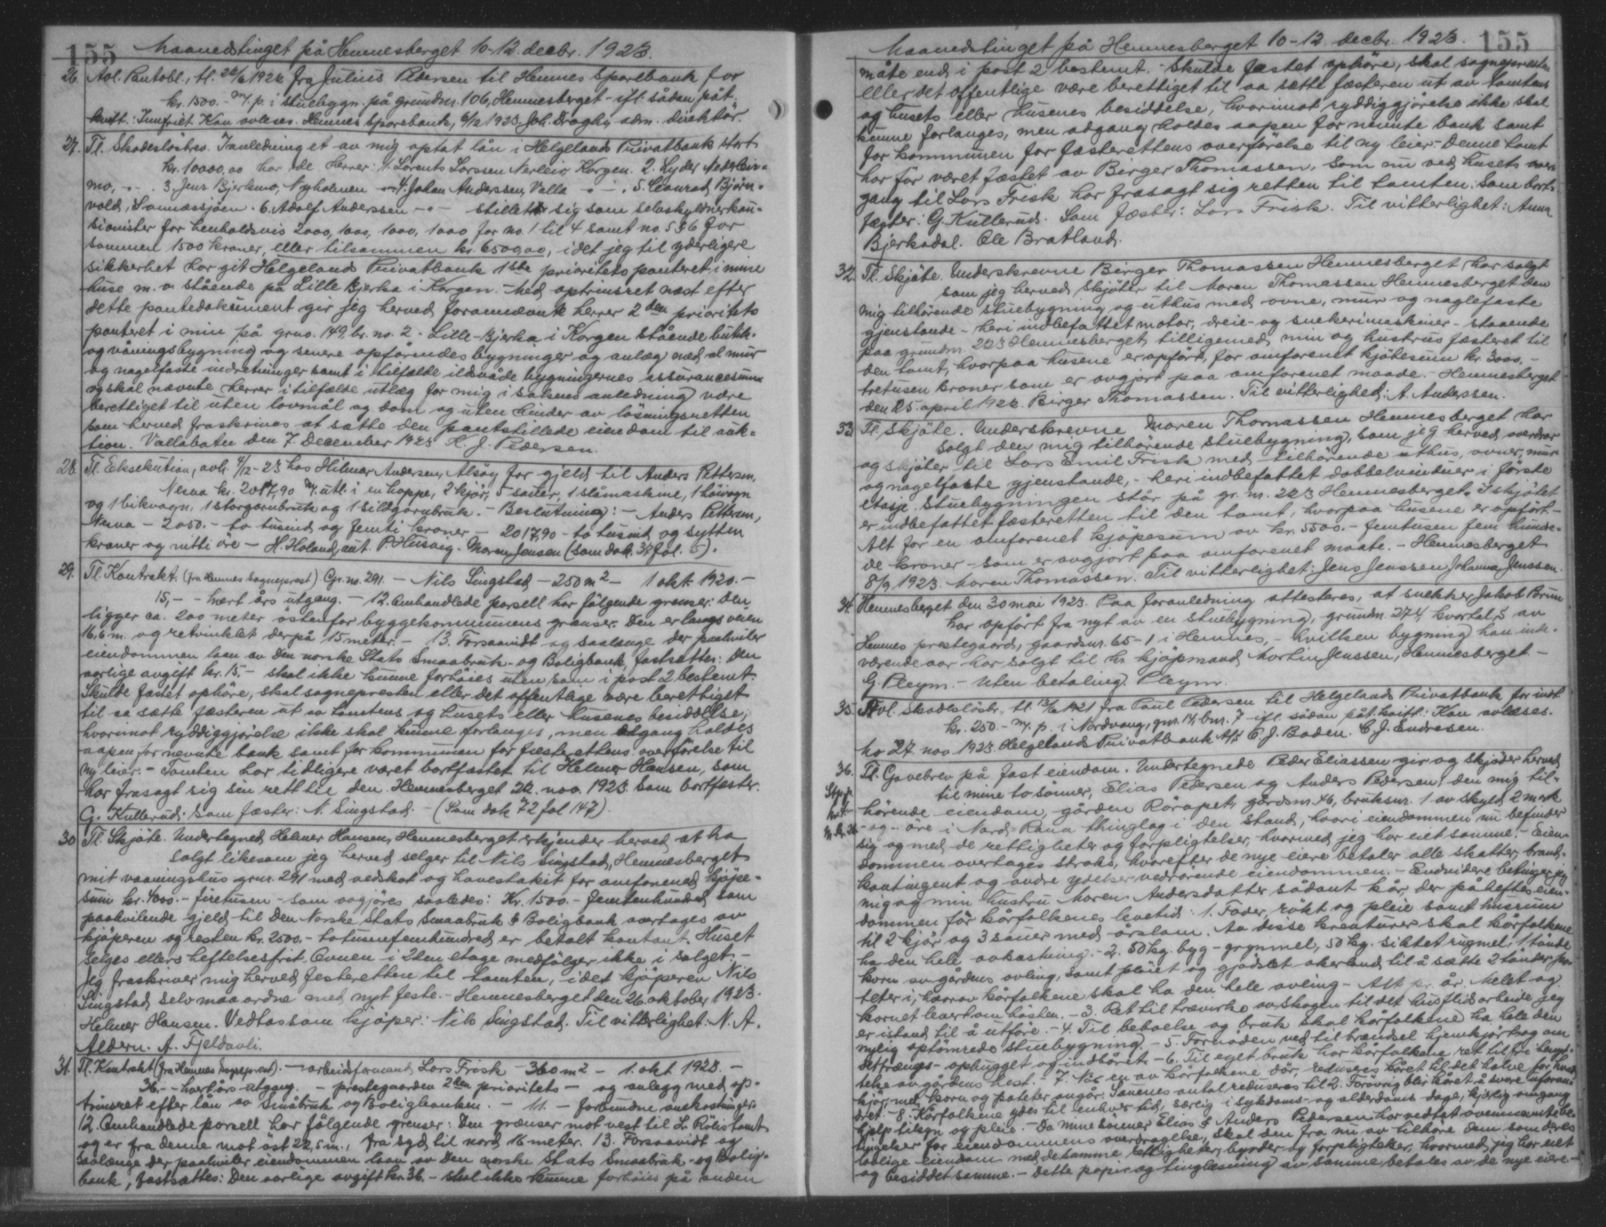 155 Maanedstinget på Hemnesberget 10-12 decbr. 1923.
26. Avl. Pantobl., tl. 1924 fra Julius Pedersen til Hemnes Sparebank for
kr. 1500.- m. p. i stuebygn. på grundnr. 106, Hemnesberget - ifl. sådan påt.
kvitt: Innfriet. Kan avleses. Hemnes Sparebank, 1923. Joh. Draghy adm. direktör.
27. Tl. Skadeslösbrev. I anledning et av mig optat lån i Helgelands Privatbank stort
kr. 10000,00 har de herrer: 1. Lorents Larssen Nerleir Korgen. 2. Lyder Nedre
mo, - 3. Jens Bjerkmo, Nyholmen - 4. Johan Anderssen, Valla - 5. Conrad Björn-
vold, Sannessjöen. 6. Adolf Anderssen - stillet sig som selvskyldnerkau-
sionister for henholdsvis 2000, 1000, 1000, 1000 for no. 1 til 4 samt no. 5 & 6 for
sammen 1500 kroner, eller tilsammen kr. 6500,00, idet jeg til yderligere
sikkerhet har git Helgelands Privatbank 1ste prioritets panteret i mine
huse m. v. stående på Lille Bjerka i Korgen. - Med optrinsret næst efter
dette pantedokument gir jeg herved forannævnte herrer 2den prioritets
panteret i min på grno. 149, br. no. 2 - Lille Bjerka i Korgen stående butik-
og våningsbygning og senere opförendes bygninger og anlæg med al mur
og nagelfaste indretninger samt i tilfælde ildsvåde bygningernes assurancesum
og skal nævnte herrer i tilfælde utlæg for mig i sakens anledning være
berettiget til uten lovmål og dom og uten hinder av lösningsretten
som herved fraskrives at sætte den pantstillede eiendom til auk-
tion. Vallabotn den 7. December 1923 H. J. Pedersen.
28. Tl. Eksekution, avh. 4/12-23 hos Hilmar Andersen, Alsöy for gjeld til Anders Pettersen,
Nesna kr. 2017,90 m. utl. i en hoppe, 2 kjör, sauer, 1 slåmaskine, 1 höivogn
og 1 bikvogn, 1 storgarnbruk og 1 sildgarnbruk. - Beslutning: - Anders Pettersen,
Nesna - 2050.- to tusind og femti kroner - 2017,90 - to tusind og sytten
kroner og nitti öre - H. Holand, aut. P. Husvig. Norm. Jensen (sam dok. 38 fol. 5).
29. Tl. Kontrakt. (fra Hemnes Sogneprest) Gr. no. 291. - Nils Singstad - 250 m² - 1 okt. 1920.-
15,- - hvert års utgang. - 12. Omhandlede parsell har fölgende grenser: Den
ligger ca. 200 meter östenfor byggekommunens grenser. Den er langs veien
16.6 m. og retvinklet derpå 15 meter. - 13. Forsaavidt og saalænge der paahviler
eiendommen laan av den norske Stats Smaabruk- og Boligbank, fastsættes: Den
aarlige avgift kr. 15,- skal ikke kunne forhöies uten som i post 2 bestemt.
Skulde fæstet ophöre, skal sognepresten eller det offentlige være berettiget
til aa sætte fæsteren ut av tomtens og husets eller husenes besiddelse,
hvorimot ryddiggjörelse ikke skal kunne forlanges, men adgang holdes
aapen for nevnte bank samt for kommunen for fæsterettens overförelse til
ny leier. - Tomten har tidligere været bortfæstet til Helmer Hansen, som
har frasagt sig sin rett til den. Hemnesberget 22. nov. 1923. Som bortfæster.
G. Kullerud. Som fæster: N. Singstad - (Sam dok 72 fol 147)
30. Tl. Skjöte. Undertegnede Helmer Hansen, Hemnesberget erkjender herved at ha
solgt likesom jeg herved selger til Nils Singstad, Hemnesberget
mit vaaningshus grnr. 291 med vedskot og havestakit for omforened kjöpe-
sum kr. 4000.- firetusen - som avgjöres saaledes: Kr. 1500.- femtenhundred som
paahvilende gjeld til Den Norske Stats Smaabruk & Boligbank overtages av
kjöperen og resten kr. 2500.- totusenfemhundred er betalt kontant. Huset
selges ellers heftelsesfrit. Ovnen i 2den etage medfölger ikke i salget.-
Jeg fraskriver mig herved festeretten til tomten, idet kjöperen Nils
Singstad selv maa ordne med nyt feste. - Hemnesberget den 26. oktober 1923.
Helmer Hansen. Vedtas som kjöper: Nils Singstad. Til vitterlighet: N. A.
Aldern. A. Fjeldavli.
31. Tl. Kontrakt (fra Hemnes Sogneprest) - arbeidsformand Lars Frisk - 360 m² - 1. okt. 1923. -
36.- - hvert års utgang. - prestegaarden 2den prioritets - og anlegg med op-
trinsret efter lån av Småbruk og Boligbanken. - 11. - forbundne omkostninger.
12. Omhandlede parsell har fölgende grenser: Den grenser mot vest til L. Röös tomt
og er fra denne mot öst 22,5 m., fra syd til nord 16 meter. 13. Forsaavidt og
saalænge der paahviler eiendommen laan av Den norske Stats Smaabruk- og Bolig-
bank, fastsættes: Den aarlige avgift kr. 36.- skal ikke kunne forhöies på anden
Maanedstinget på Hemnesberget 10-12 decbr. 1923. 155
måte end i post 2 bestemt. - Skulde fæstet ophöre, skal sognepresten
eller det offentlige være berettiget til aa sætte fæsteren ut av tomtens
og husets eller husenes besiddelse, hvorimot ryddiggjörelse ikke skal
kunne forlanges, men adgang holdes aapen for nevnte bank samt
for kommunen for fæsterettens overförelse til ny leier. - Denne tomt
har för været fæstet av Birger Thomassen, som nu ved husets over-
gang til Lars Frisk har frasagt sig retten til tomten. Som bort-
fæster: G. Kullerud. Som fæster: Lars Frisk. Til vitterlighet: Anna
Bjerkadal. Ole Bratland.
32. Tl. Skjöte. Underskrevne Birger Thomassen Hemnesberget har solgt
som jeg herved skjöter til Maren Thomassen Hemnesberget den
mig tilhörende stuebygning og uthus med ovne, mur og naglefaste
gjenstande - heri indbefattet motor, dreie- og snekerimaskiner - staaende
paa grundnr. 223 Hemnesberget, tilligemed min og hustrus fæsteret til
den tomt, hvorpaa husene er opfört, for omforenet kjöbesum kr. 3000.-
tretusen kroner som er avgjort paa omforenet maade. - Hemnesberget
den 25 april 1923. Birger Thomassen. Til vitterlighed: A. Anderssen.
33. Tl. Skjöte. Underskrevne Maren Thomassen Hemnesberget har
solgt den mig tilhörende stuebygning, som jeg herved overdrar
og skjöter til Lars Emil Frisk med tilhörende uthus, ovner, mur
og nagelfaste gjenstande, - heri indbefattet dobbelvinduer i förste
etasje. Stuebygningen står på gr. nr. 223 Hemnesberget. I skjötet
er indbefattet fæsteretten til den tomt, hvorpaa husene er opfört.-
Alt for en omforenet kjöpesum av kr. 5500.- femtusen fem hundre-
de kroner - som er avgjort paa omforenet maate. - Hemnesberget
8/9 1923. Maren Thomassen. Til vitterlighet: Jens Jenssen, Johanna Jenssen.
34. Hemnesberget den 30 mai 1923. Paa foranledning attesteres, at snekker Jakob Brun
har opfört fra nyt av en stuebygning, grundnr. 274, kvartal 5 av
Hemnes prestegaard, gaardsnr. 65-1 i Hemnes, - hvilken bygning han inde-
værende aar har solgt til hr. kjöpmand Martin Jenssen, Hemnesberget -
G. Pleym. - Uten betaling. Pleym.
35. Avl. Skadeslösbr. tl. 1921 fra Paul Pedersen til Helgelands Privatbank for indt.
kr. 250 - m. p. i Nordvang, gnr. 14, bnr. 7 - ifl. sådan påt. kvitt: Kan avleses.
Mo 27. nov. 1923 Helgelands Privatbank A/S C. J. Boden. C. J. Endresen.
36. Tl. Gavebrev på fast eiendom. Undertegnede Peder Eliassen gir og skjöder herved
til mine to sönner, Elias Pedersen og Anders Pedersen den mig til-
hörende eiendom, gården Rörapet, gårdsnr. 46, bruksnr. 1 av skyld 2 mark
og - öre i Nord-Rana thinglag i den stand, hvori eiendommen nu befinder
sig og med de rettigheter og forpligtelser, hvormed jeg har eiet samme. - Eien-
dommen overtages straks, hvorefter de nye eiere betaler alle skatter, brand-
kontingent og andre ydelser vedrörende eiendommen. - Endvidere betinger jeg
mig og min hustru Maren Andersdatter sådant kår, der påhefter eien-
dommen för kårfolkenes levetid: 1. Foder, rökt og pleie samt husrum
til 2 kjör og 3 sauer med årslam. Av disse kreaturer skal kårfolkene
ha den hele avkastning. - 2. 50 kg. byg-grynmel, 50 kg. siktet rugmel, 1 tönde
korn av gårdens avling, samt plöiet og gjödslet akerland til å sætte 2 tönder po-
teter i, hvorav kårfolkene skal ha den hele avling - Alt pr. år. Melet og
kornet leveres om hösten. - 3. Ret til trævirke av skogen til det husflidsarbeide jeg
er istand til å utföre. - 4. Til beboelse og bruk skal kårfolkene ha hele den
nylig optömrede stuebygning. - 5. Fornöden ved til brændsel hjemkjört og om
det trænges - ophugget og indbåret. - 6. Til eget bruk har kårfolkene ret til fri
telse av gårdens hest. - 7. Når en av kårfolkene dör, reduceres kåret til det halve for hvad
kjör, mel, korn og poteter angår. Sauenes antal reduseres til 2. Forövrig blir kåret å svare uforan-
dret. - 8. Kårfolkene ydes til enhver tid, særlig i sykdoms- og alderdoms dage, kjærlig omgang
hjelp tilsyn og pleie. - Da mine sönner Elias & Anders Pedersen har vedtat ovennævnte be-
tingelser for eiendommens overdragelse, skal den fra nu av tilhöre dem som deres
lovlige eiendom med de samme rettigheter, byrder og forpligtelser, hvormed jeg har eiet
og besiddet samme. - Dette papir og tinglesning av samme betales av de nye eiere -